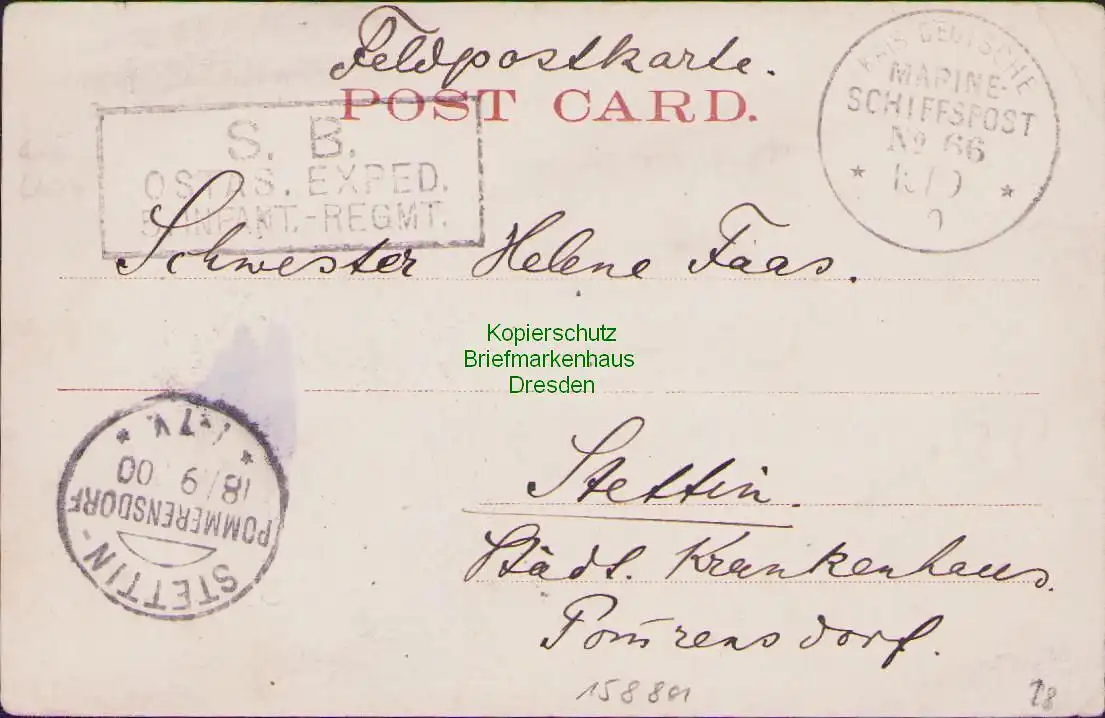 Feldpostkarte.
POST CARD.
S. B.
OSTAS. EXPED.
5. INFANT.-REGMT.
KAIS. DEUTSCHE
MARINE-
SCHIFFSPOST
No 66
Schwester Helene Faas.
Kopierschutz
Briefmarkenhaus
Dresden
18/9 00
POMMERENSDORF
STETTIN-
Stettin.
Städt. Krankenhaus.
Pom̅rensdorf.